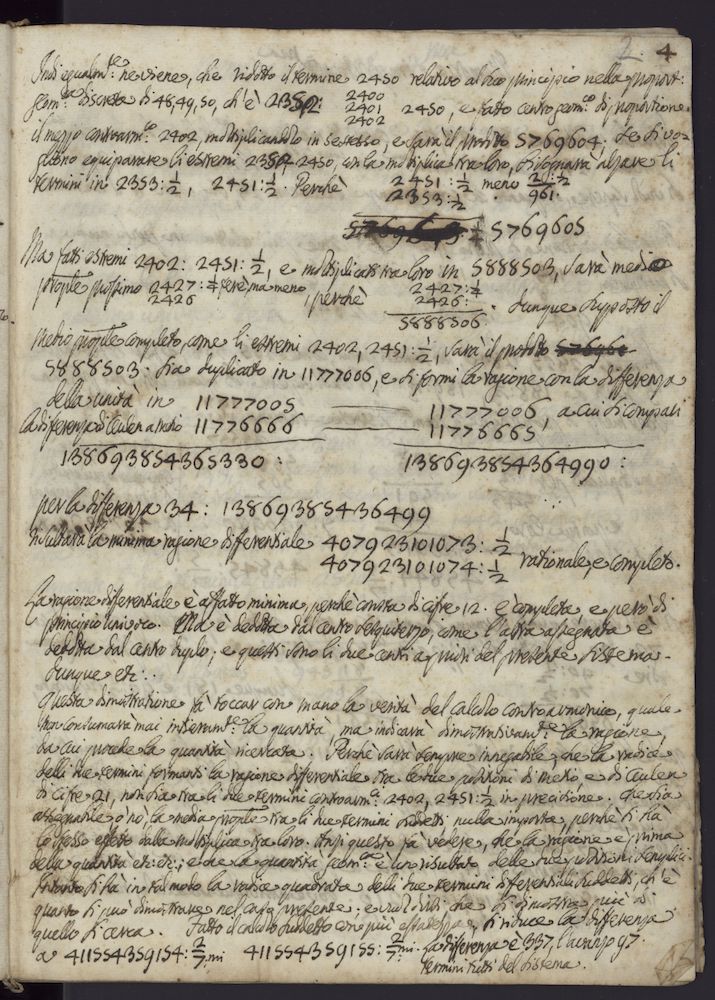 2. 4
Indi egualm.te ne viene, che ridotto il termine 2450 relativo al suo principio nella proport:
geom.ca discreta di 48, 49, 50, ch'è 2352: 2400 2401 2402 2450, e fatto centro geom.co di proportione
il mezzo contrarm.co 2402, moltiplicandolo in se stesso, e sarà il prodotto 5769604. Se si vo=
gliono equiparare li estremi 2352 2450, con la moltiplica tra loro, bisognarà alzare li
termini in 2353:½, 2451:½. Perchè 2451:½ meno
2353:½ 961.
5769605
Ma fatti estremi 2402: 2451:½, e moltiplicati tra loro in 5888503, sarà medio
prop.le prossimo 2427: 2426 perchè 2427:
2426:
5888506. Dunque supposto il
medio prop.le completo, come li estremi 2402, 2451:½, sarà il prodotto
5888503. Sia duplicato in 11777006, e si formi la ragione con la differenza
della unità in 11777005 11777006, a cui si compari
la differenza di Ceulen a Metio 11776666 11776665
138693854365330: 138693854364990:
per la differenza 34: 13869385436499
risultarà la minima ragione differentiale 407923101073:½
407923101074:½ rationale, e completo.
La ragione differentiale è affatto minima, perchè consta di cifre 12. è completa, e però di
principio univoco. Ma è dedotta dal centro sesquiterzo, come l'altra assegnata è
dedotta dal centro duplo; e questi sono li due centri del presente sistema.
Dunque etc:.
Questa dimostratione fà toccar con mano la verità del calcolo contrarmonico, quale
non consumarà mai interam.te la quantità, ma indicarà dimostrativam.te la ragione,
da cui procede la quantità ricercata. Perchè sarà sempre innegabile, che la radice
delli due termini formanti la ragione differentiale tra le due positioni di Metio, e di Ceulen
di cifre 21, non sia tra li due termini contrarm.ci 2402, 2451:½ in precisione. Che sia
assegnabile, o nò, la media prop.le tra li due termini sudetti, nulla importa, perchè si hà
lo stesso effetto dalla moltiplica tra loro. Anzi questo fà vedere, che la ragione è prima
della quantità etc: etc:; e che la quantità geom.ca è un risultato delle due positioni semplici.
Intanto si hà in tal modo la radice quadrata delli due termini differentiali sudetti, ch'è
quanto si può dimostrare nel caso presente; e vuol dirsi che si dimostra più di
quello si cerca. Fatto il calcolo sudetto con più esattezza, si riduce la differenza
a 411554359154: 2/7mi 411554359155: 2/7mi. La differenza è 337, l'avanzo 97.
termini tutti del sistema.